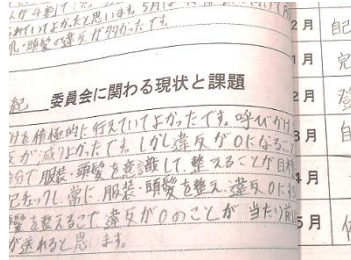 られていてよかったと思います。5月は
乳・頭髪の違反が多かったです。
紀 委員会に関わる現状と課題
けを積極的に行えていてよかったです。呼びかけ
反が減りよかったです。しかし違反が0になること
分で服装・頭髪を意識して整えることが目標
記チェックし常に、服装・頭髪を整え、違反0に
髪を整えるこで、違反が0のことが当たり前
が送れると思います。
2月 自己
1月 完
2月
3月 自
4月
5月